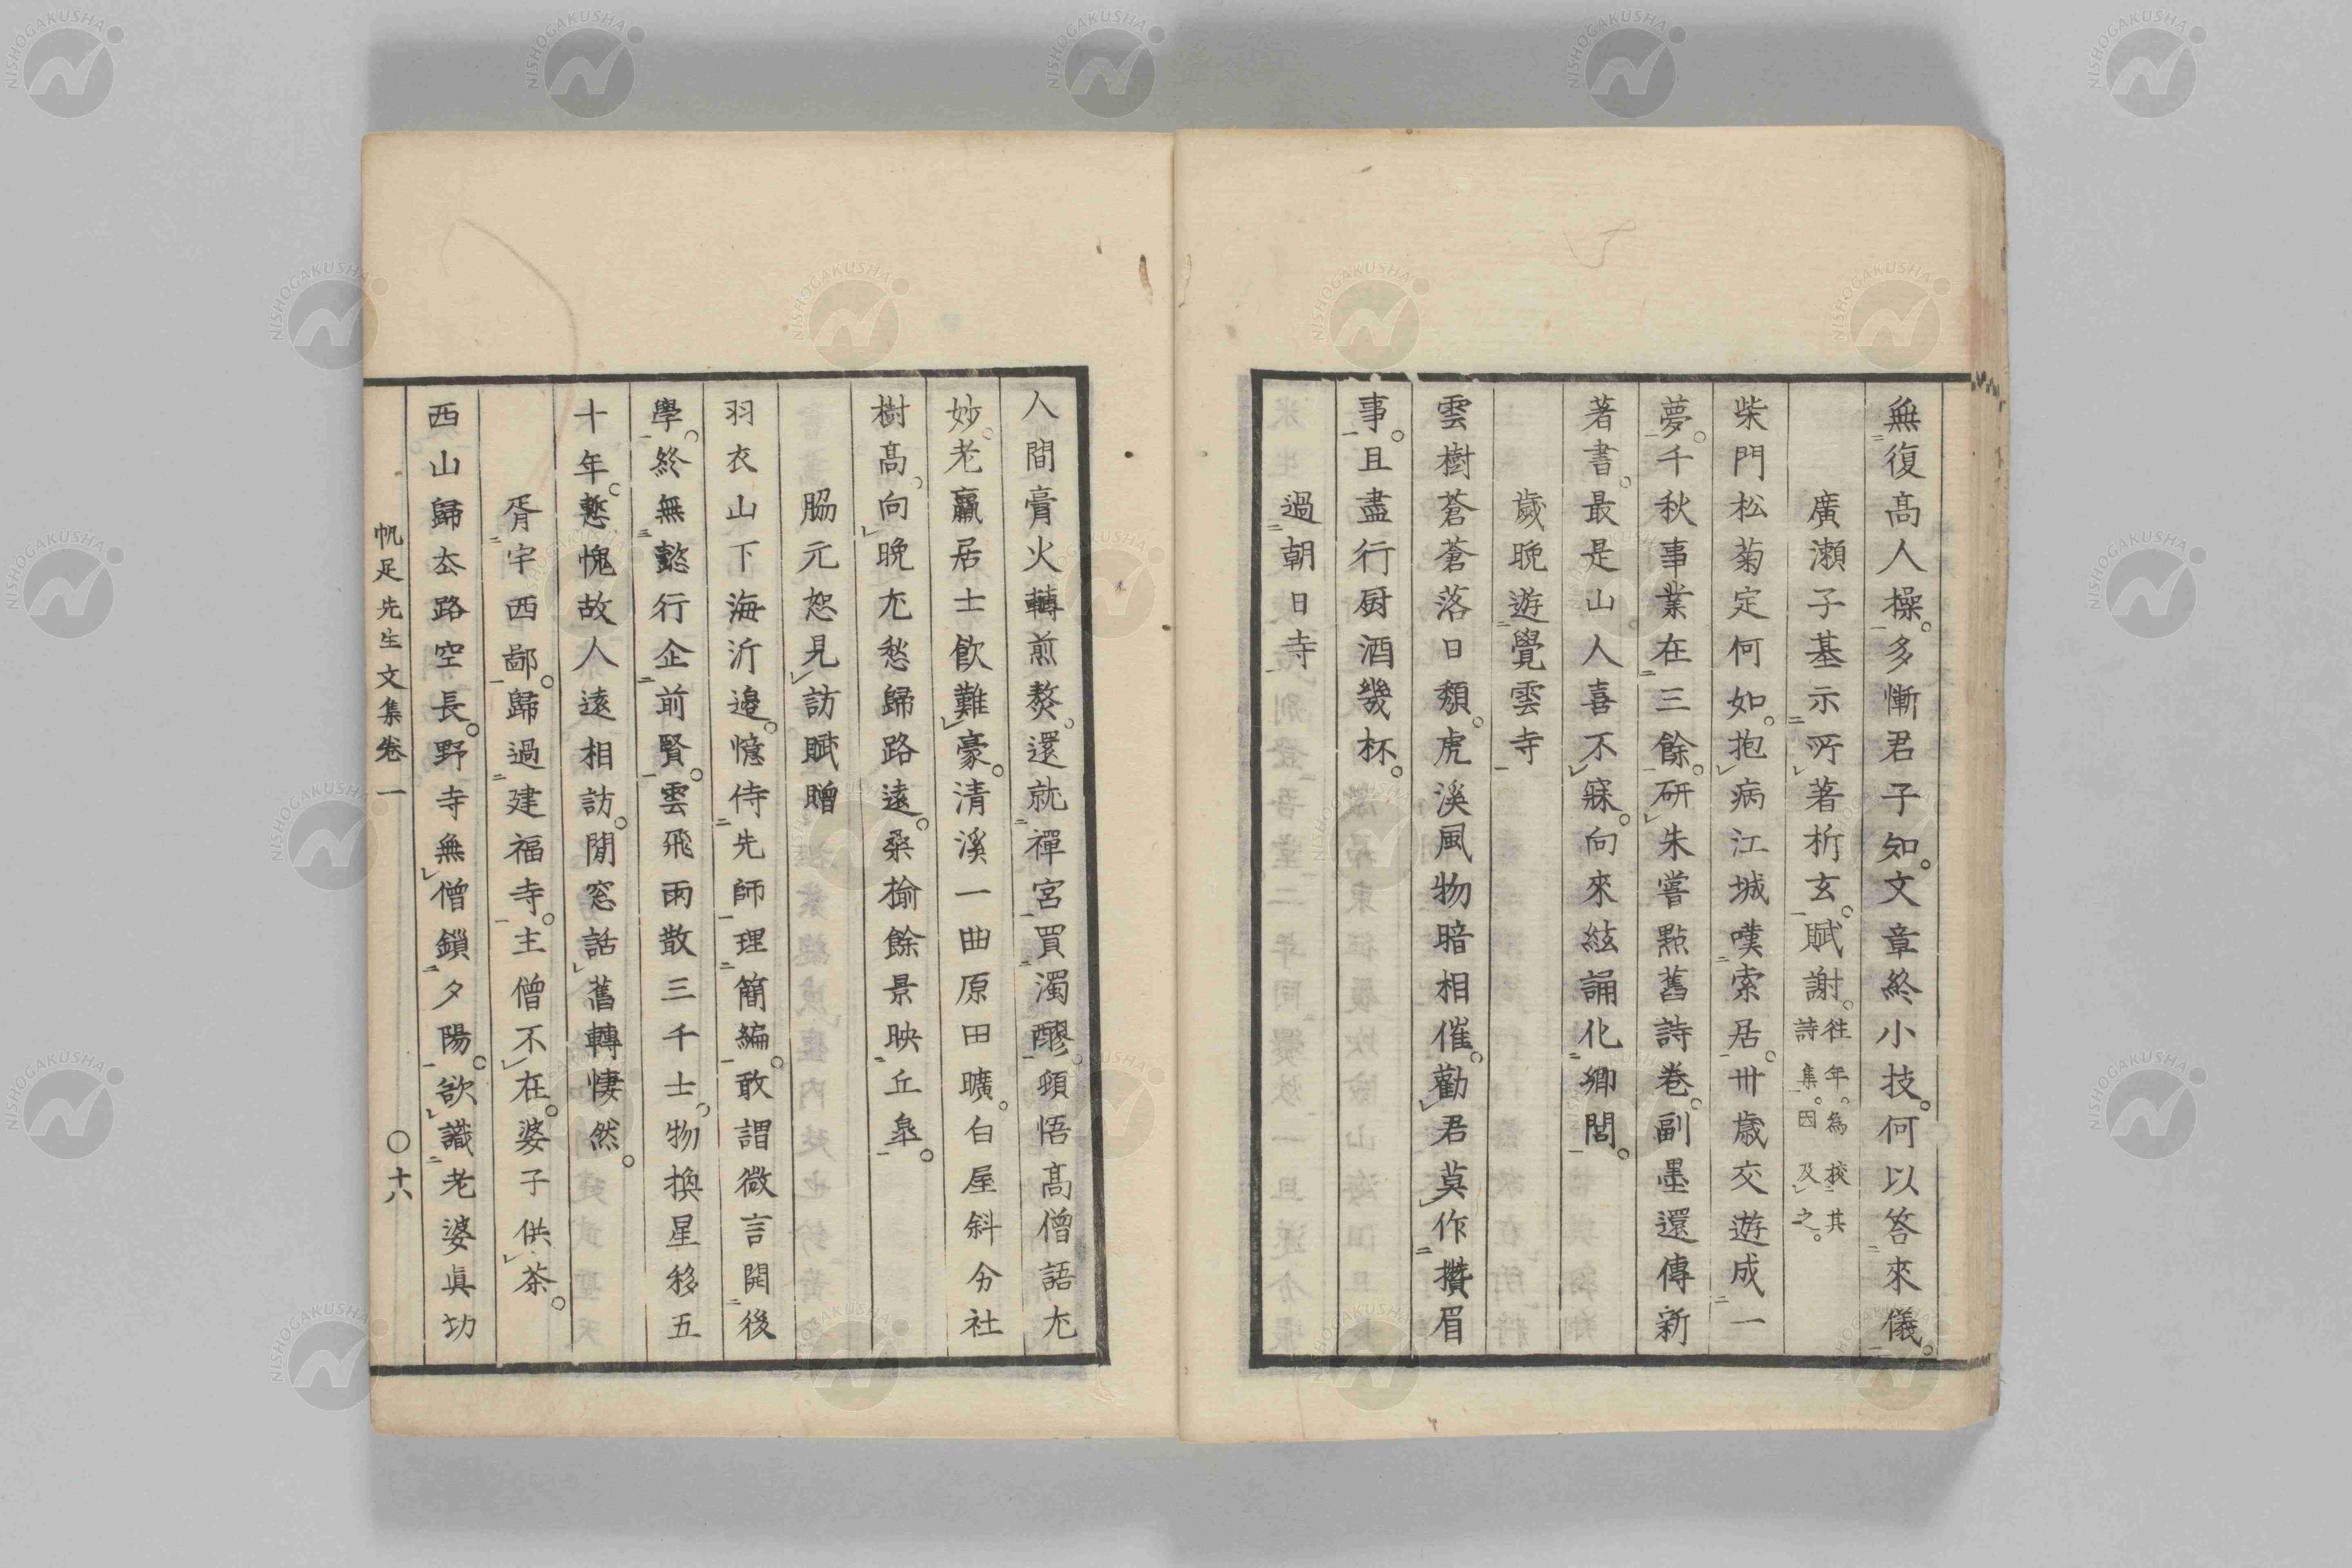 無復髙人操。多慚君子知。文章終小技。何以答來儀。
廣瀬子基示所著析玄。賦謝。往年。為校其詩集。因及之。
柴門松菊定何如。抱病江城嘆索居。丗歳交遊成一
夢。千秋事業在三餘。研朱嘗㸃舊詩巻。副墨還傳新
著書。最是山人喜不寐。向來絃誦化鄉閭。
歲晩遊覺雲寺
雲樹蒼蒼落日頽。虎溪風物暗相催。勸君莫作攅眉
事。且盡行厨酒幾杯。
過朝日寺
人間膏火轉煎熬。還就禪宮買濁醪。頓悟髙僧語尤
妙。老羸居士飲難豪。清溪一曲原田曠。白屋斜分社
樹髙。向晩尤愁歸路遠。桑楡餘景映丘皐。
脇元恕見訪賦贈
羽衣山下海沂邉。憶侍先師理簡編。敢謂微言開後
學。終無懿行企前賢。雲飛雨散三千士。物換星移五
十年。慙愧故人遠相訪。閒窓話舊轉悽然。
胥宇西鄙。歸過建福寺。主僧不在。婆子供茶。
西山歸去路空長。野寺無僧鎖夕陽。欲識老婆眞切
帆足先生文集卷一
○十六
NISHOGAKUSHA